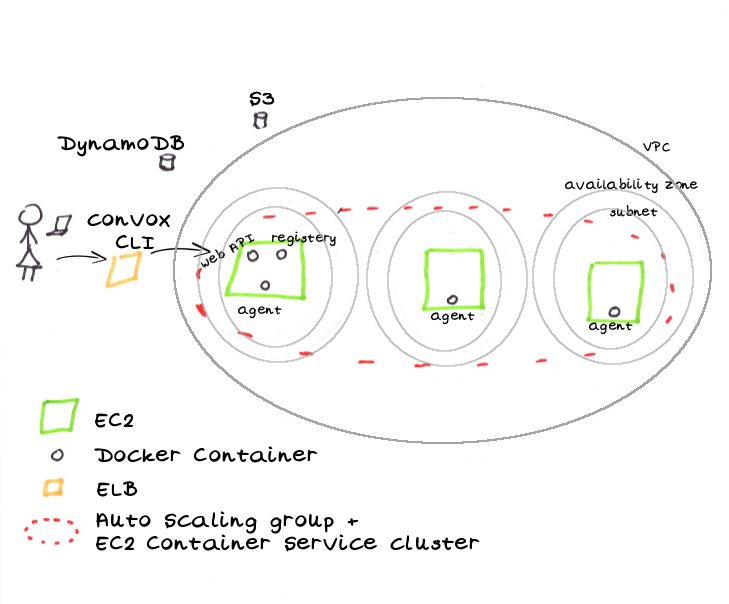 S3
DynamoDB
VPC
availability zone
subnet
convox
CLI
web API
registery
agent
agent
agent
EC2
Docker Container
ELB
Auto Scaling group +
EC2 Container Service cluster